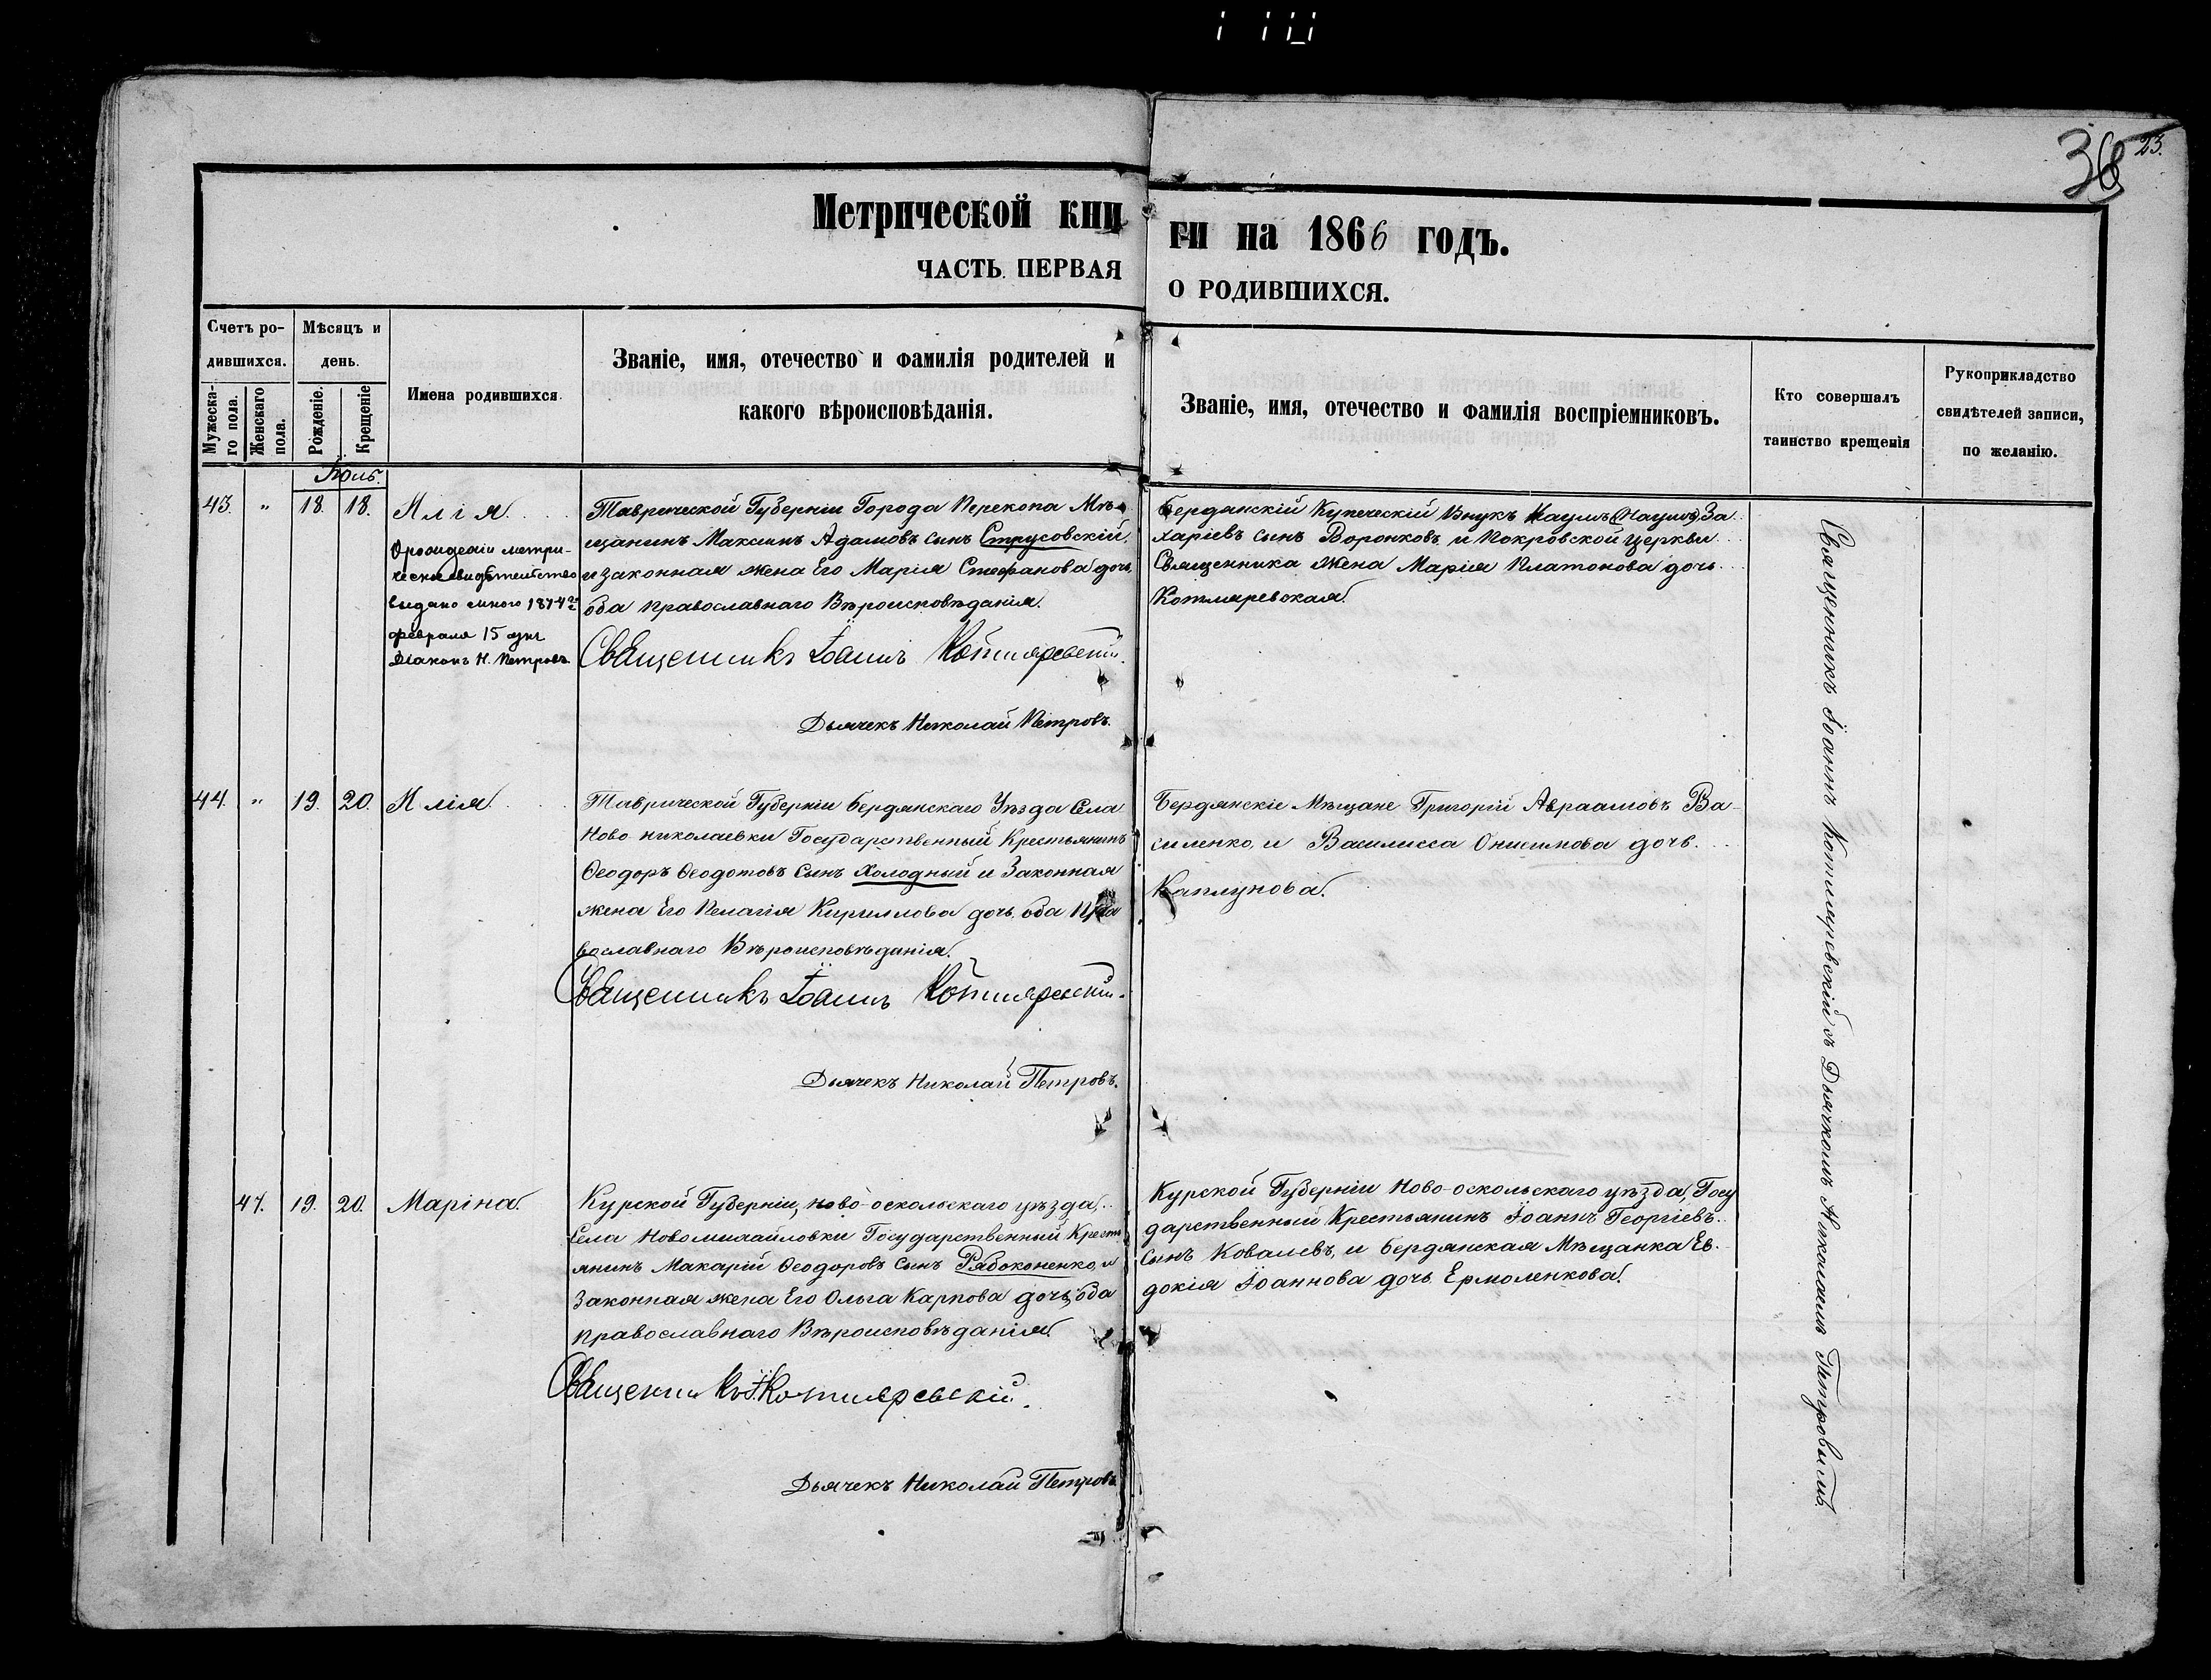 36 23.
Метрической книги на 1866 годъ.
ЧАСТЬ ПЕРВАЯ О РОДИВШИХСЯ.
Счетъ ро-
дившихся.
Мужеска-
го пола.
Женскаго
пола.
Мѣсяцъ и
день.
Рожденіе.
Крещеніе
Имена родившихся.
Званіе, имя, отечество и фамилія родителей и
какого вѣроисповѣданія.
Званіе, имя, отечество и фамилія воспріемниковъ.
Кто совершалъ
таинство крещенія
Рукоприкладство
свидѣтелей записи,
по желанію.
Іюль.
43. " 18. 18. Илія.
О рожденіи метри-
ческое свидѣтельство
выдано
февраля 15 дня
Діаконъ Н. Петровъ.
Таврической Губерніи Города Перекопа Мѣ-
щанинъ Максимъ Адамовъ сынъ Струсовскій,
и законная жена Его Марія Стефанова дочь,
оба православнаго Вѣроисповѣданія.
Священникъ Іоаннъ Котляревскій.
Дьячекъ Николай Петровъ.
Бердянскій Купеческій Внукъ Наумъ (Наумъ) За-
харіевъ сынъ Воронковъ, и Покровской церкви
Священника жена Марія Платонова дочь
Котляревская.
44. " 19. 20. Илія.
Таврической Губерніи Бердянскаго Уѣзда Села
Ново-николаевки Государственный Крестьянинъ
Ѳеодоръ Ѳеодотовъ сынъ Холодный и Законная
жена Его Пелагія Кириллова дочь, оба Пра
вославнаго Вѣроисповѣданія.
Священникъ Іоаннъ Котляревскій.
Дьячекъ Николай Петровъ.
Бердянскіе Мѣщане Григорій Авраамовъ Ва-
силенко, и Василисса Онисимова дочь
Каплунова.
47. 19. 20. Марина.
Курской Губерніи, Ново-оскольскаго уѣзда,
Села Новомихайловки Государственный Кресть
янинъ Макарій Ѳеодоровъ Сынъ Рябоконенко, и
Законная жена Его Ольга Карпова дочь, оба
православнаго Вѣроисповѣданія.
Священникъ І. Котляревскій.
Дьячекъ Николай Петровъ
Курской Губерніи Ново-оскольскаго уѣзда, Госу
дарственный Крестьянинъ Іоаннъ Георгіевъ
сынъ Ковалевъ, и Бердянская Мѣщанка Ев-
докія Іоаннова дочь Ермоленкова.
Священникъ Іоаннъ Котляревскій съ Дьячкомъ Николаемъ Петровымъ